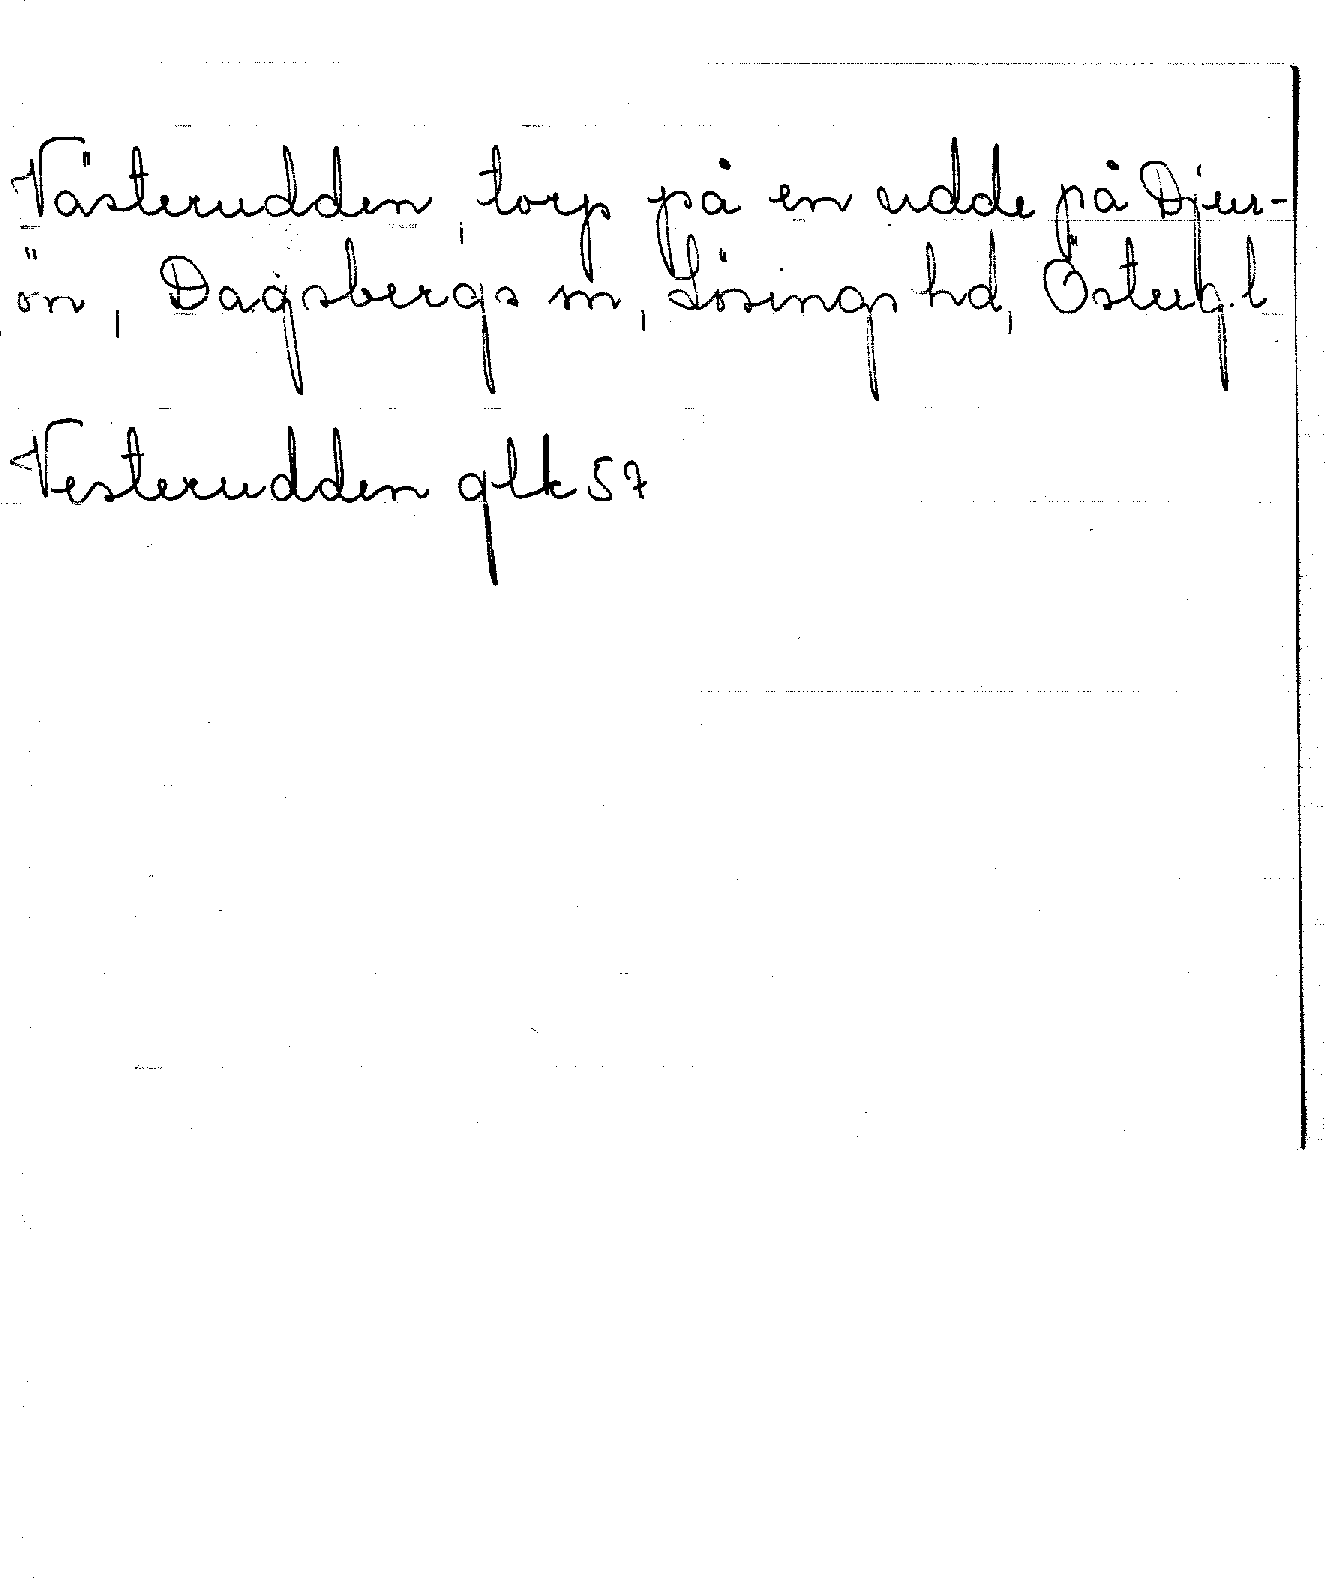 Västerudden, torp på en udde på Djur-
ön, Dagsbergs sn, Lösings hd, Österg. l
Vesterudden glk 57